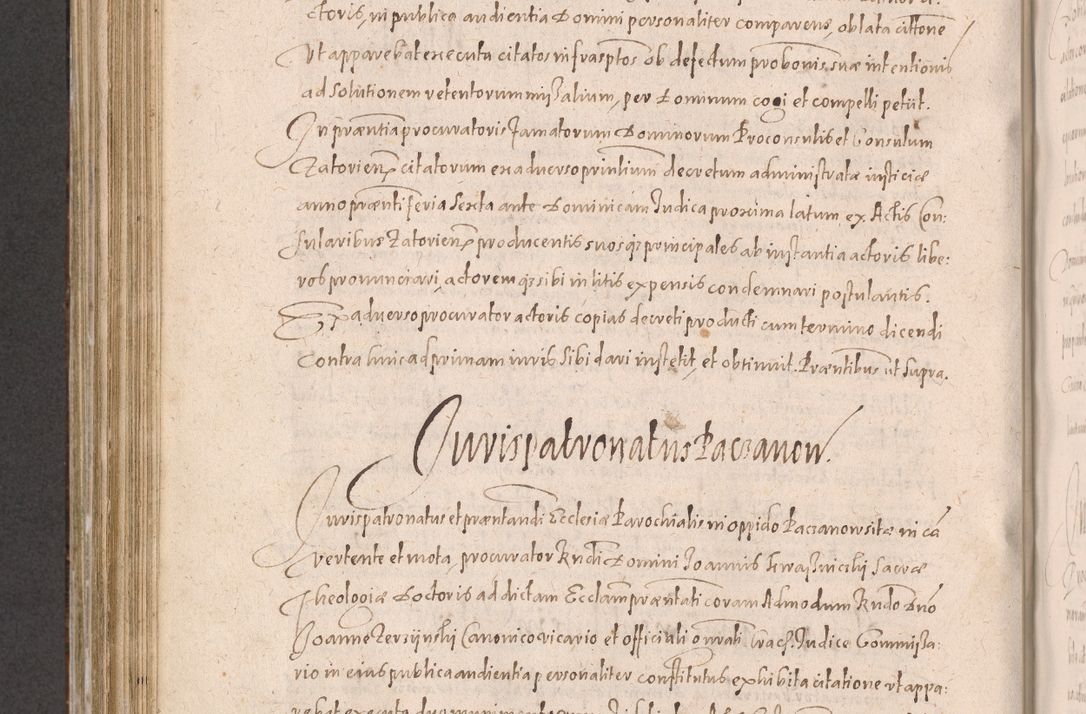 ctoris, in publica audientia Domini personaliter comparens, oblata cittone
ut apparebat executa citatos infrasptos ob defectum probonis suæ intentionis
ad solutionem retentorum missalium, per Dominum cogi et compelli petiit.
In præntia procuratoris famatorum Dominorum Proconsulis et Consulum
Zatorien citatorum ex adverso printium decretum administratæ iusticiæ
anno præntj feria Sexta ante Dominicam Judica proxima latum ex Actis Con-
sularibus Zatorien producentis suosq principales ab instantia actoris libe:
ros pronunciari, actoremq sibi in litis expensis condemnari postulantis.
Ex adverso procurator actoris copias decreti producti cum termino dicendi
contra hinc ad primam iuris sibi dari instetit, et obtinuit. Præntibus ut supra.
Jurispatronatus Paczanow.
Jurispatronatus et præntandi Ecclesiæ Parochialis in oppido Paczanow sitæ in cā
vertente et mota, procurator Rndi Domini Joannis Sacræ
Theologiæ Doctoris ad dictam Ecclam præntati coram Admodum Rndo Dno
Joanne Zersijnskj Canonico vicario et officiali onrali Crac. Judice Commissa:
rio in eius publica audientia personaliter constitutus exhibita citatione ut appa:
rebat executa